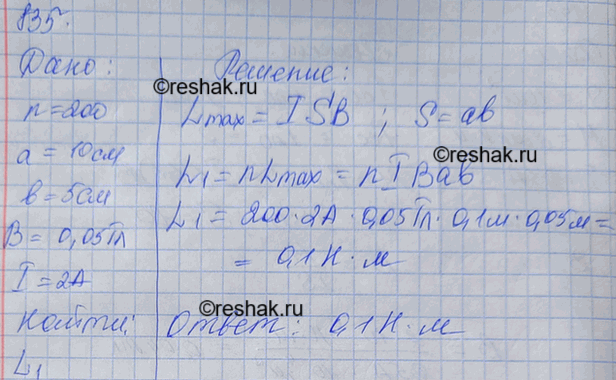 835.
Дано:
n=200
a = 10см
b = 5см
B = 0,05Тл
I = 2A
Найти:
L₁
Решение:
©reshak.ru
Lmax = ISB ; S = ab
©reshak.ru
L₁ = nLmax = nIBab
L₁ = 200·2A·0,05Тл·0,1м·0,05м=
= 0,1Н·м
©reshak.ru
Ответ: 0,1Н·м